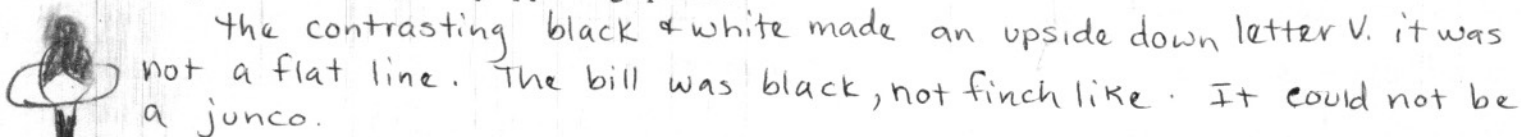 the contrasting black & white made an upside down letter V. it was
not a flat line. The bill was black, not finch like. It could not be
a junco.